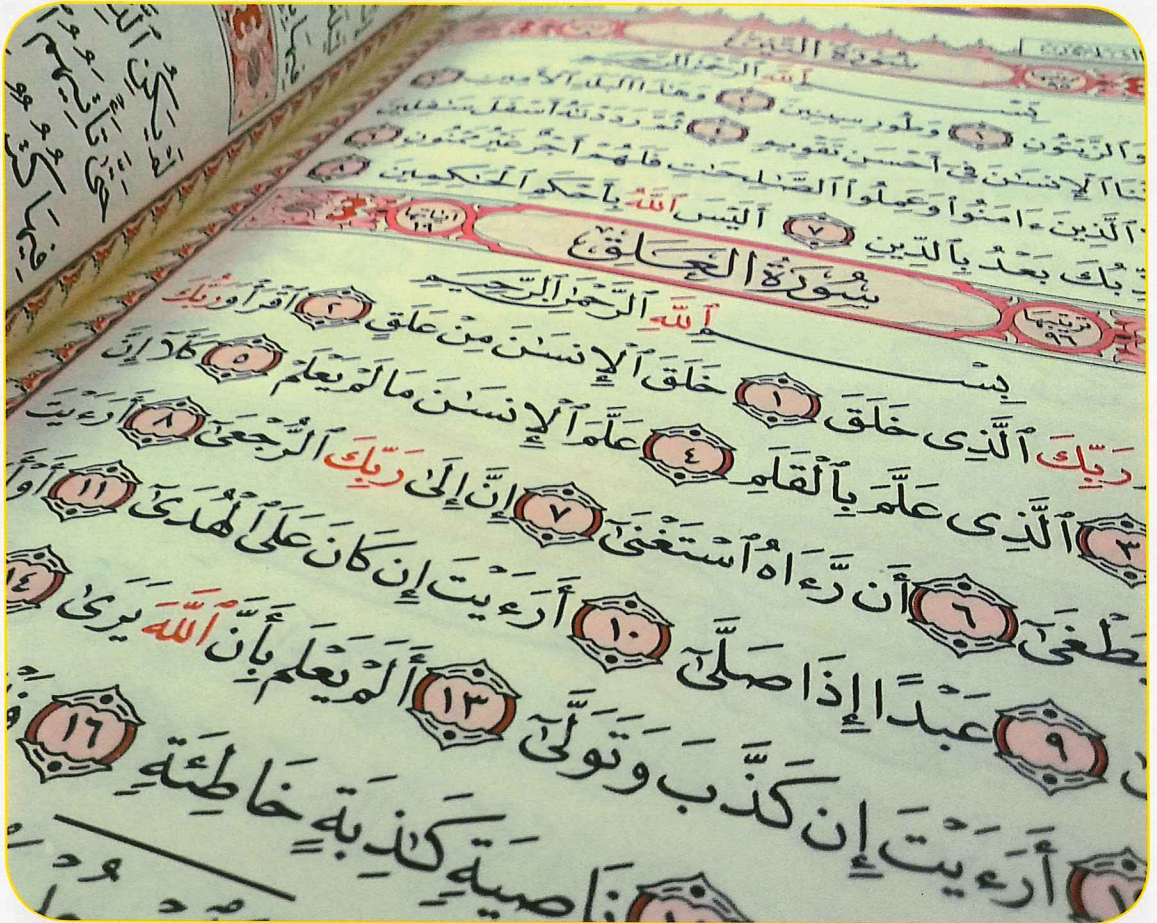 سُورَةُ التِّينِ
بِسْمِ ٱللَّهِ ٱلرَّحْمَٰنِ ٱلرَّحِيمِ
وَٱلزَّيْتُونِ ١ وَطُورِ سِينِينَ ٢ وَهَٰذَا ٱلْبَلَدِ ٱلْأَمِينِ ٣
ٱلْإِنسَٰنَ فِىٓ أَحْسَنِ تَقْوِيمٍ ٤ ثُمَّ رَدَدْنَٰهُ أَسْفَلَ سَٰفِلِينَ ٥
ٱلَّذِينَ ءَامَنُوا۟ وَعَمِلُوا۟ ٱلصَّٰلِحَٰتِ فَلَهُمْ أَجْرٌ غَيْرُ مَمْنُونٍ ٦
بَعْدُ بِٱلدِّينِ ٧ أَلَيْسَ ٱللَّهُ بِأَحْكَمِ ٱلْحَٰكِمِينَ ٨
ترتيبها ٩٦ سُورَةُ العَلَقِ آياتها ١٩
بِسْمِ ٱللَّهِ ٱلرَّحْمَٰنِ ٱلرَّحِيمِ
رَبِّكَ ٱلَّذِى خَلَقَ ١ خَلَقَ ٱلْإِنسَٰنَ مِنْ عَلَقٍ ٢ ٱقْرَأْ وَرَبُّكَ
٣ ٱلَّذِى عَلَّمَ بِٱلْقَلَمِ ٤ عَلَّمَ ٱلْإِنسَٰنَ مَا لَمْ يَعْلَمْ ٥ كَلَّآ إِنَّ
٦ أَن رَّءَاهُ ٱسْتَغْنَىٰٓ ٧ إِنَّ إِلَىٰ رَبِّكَ ٱلرُّجْعَىٰٓ ٨ أَرَءَيْتَ
٩ عَبْدًا إِذَا صَلَّىٰٓ ١٠ أَرَءَيْتَ إِن كَانَ عَلَى ٱلْهُدَىٰٓ ١١
أَرَءَيْتَ إِن كَذَّبَ وَتَوَلَّىٰٓ ١٣ أَلَمْ يَعْلَم بِأَنَّ ٱللَّهَ يَرَىٰ ١٤
نَاصِيَةٍ كَٰذِبَةٍ خَاطِئَةٍ ١٦